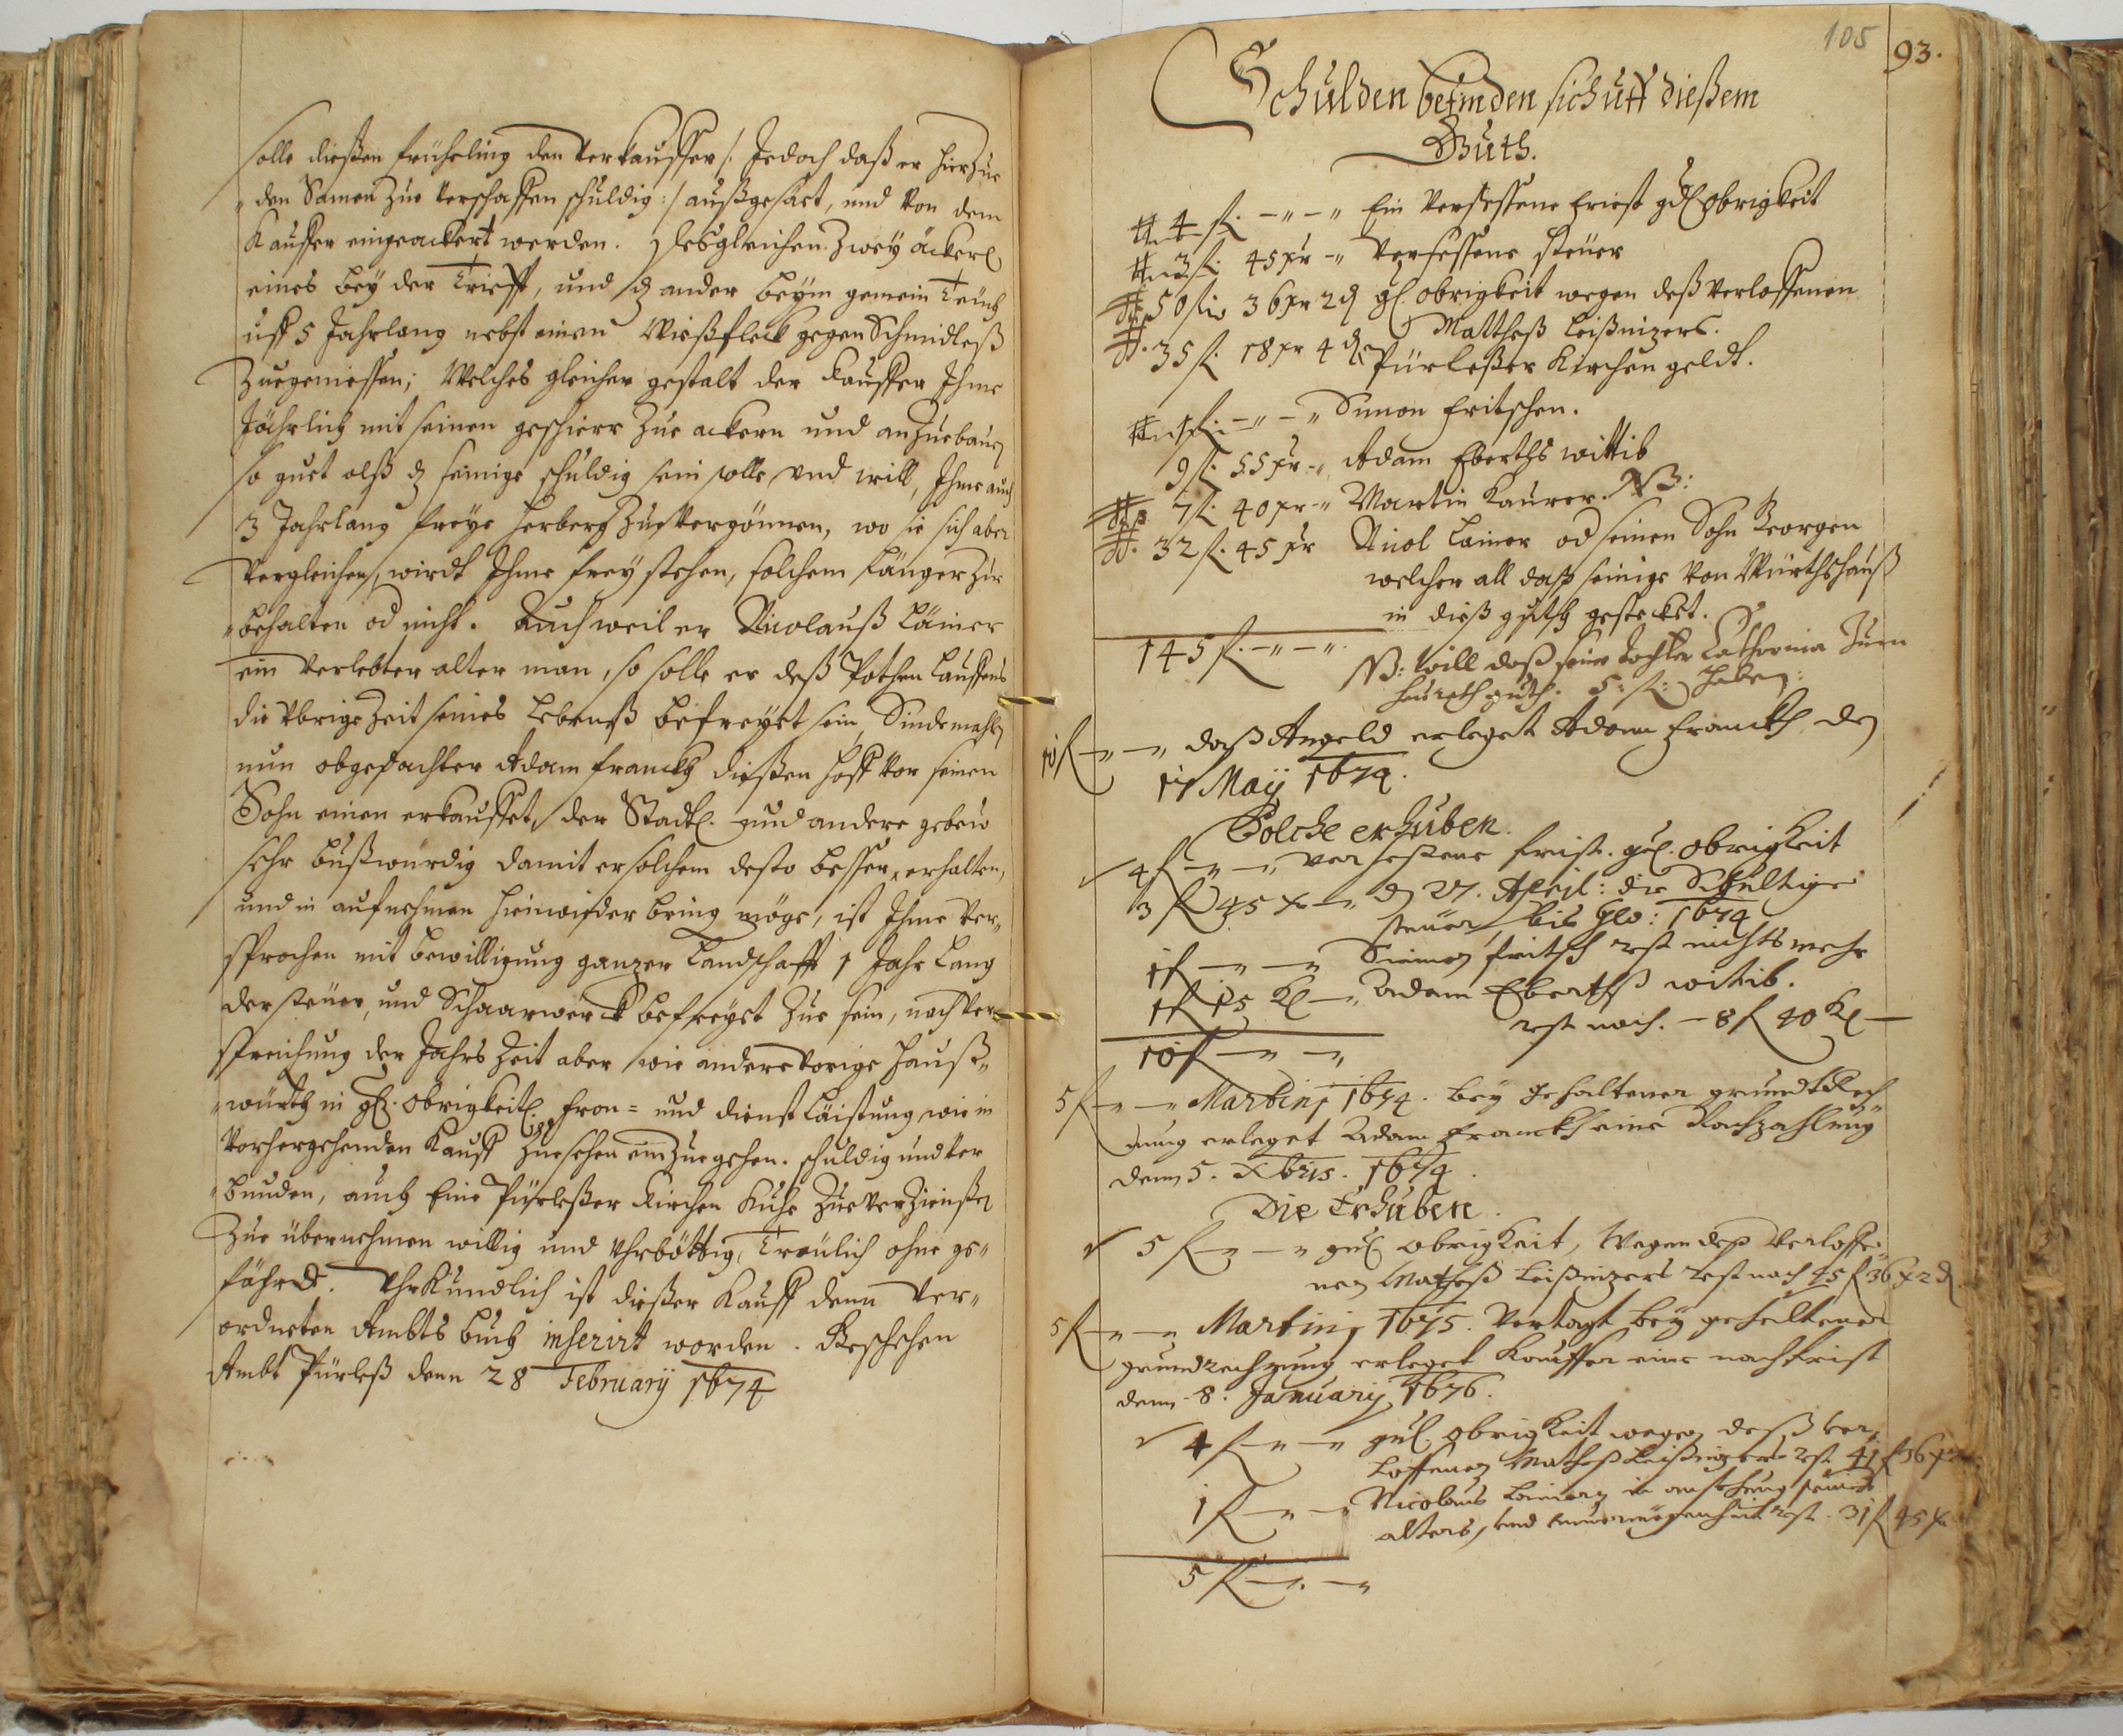 solle dießen früheling den Verkauffer /: Jedoch daß er hierzue
den Samen zue verschaffen schuldig :/ außgesäet, und von dem
Kauffer eingeackert werden. Desgleichen zwey äckerl
eines bey der Trifft, und dz ander beym gemein Teüch
uff 5 Jahrlang nebst einen Wießfleck gegen Schmidleß
Zuegeniessen; Welches gleicher gestalt der Kauffer Ihme
Jährlich mit seinen geschierr zue ackern und anzuebauen
so guet alß dz seinige schuldig sein solle, und will, Ihme auch
3 Jahrlang freye herberg zue vergönnen, wo sie sich aber
Vergleichen, wirdt Ihme frey stehen, solchem länger zue
behalten od nicht. Auch weil er Nicolauß Läiner
ein verlebter alter man, so solle er deß Pothen lauffens
die übrige Zeit seines Lebenß befreyet sein, Sindemahlen
nun obgedachter Adam Franckh dießen hoff vor seinen
Sohn einen erkauffet, der Stadl. und andere gebeü
sehr bußwürdig damit er solchem desto besser erhalten,
und in aufnehmen hinwieder bring möge, ist Ihme Ver-
sprochen mit bewilligung ganzer Landschafft 1 Jahr Lang
der steüer, und Schaarwerck befreyet zue sein, nach ver-
streichung der Jahrs Zeit aber wie andere vorige Hauß-
würth in gl. Obrigkeitl. Fron= und dienst Läistung, wie in
Vorhergehenden Kauff zuesehen einzuegehen. schuldig und ver
bunden, auch Eine Pürleßer Kirchen Kuhe zue verzienßen
zue übernehmen willig und Uhrböttig, Treülich ohne ge-
fährde. Uhrkundlich ist dießer Kauff denn Ver-
ordneten Ambts buch inserirt worden. Geschehen
Ambt Pürleß denn 28 February 1674
105
93.
Schulden befinden sich uff dießem
Guth.
4 fl. -"-" Ein Versessene Friest gdl Obrigkeit
3 fl. 45 xr -" Versessene steüer
50 fl 36 xr 2 d gl. Obrigkeit wegen deß Verloffenen
Mattheß Leißnizers.
35 fl. 18 xr 4 d Pürleßer Kirchen geldt.
1 fl. -"-" Simon Fritschen.
9 fl. 55 xr -" Adam Eberths wittib
7 fl. 40 xr -" Martin Kaurer. NB:
32 fl. 45 xr Nicol Lainer od seinen Sohn Georgen
welcher all daß seinige von Würthshauß
in dieß guth gesteckt.
145 fl. -"-"
NB: will daß seine Tochter Catharina zum
heurath guth. 5: fl: haben:
10 fl -"-" daß Angeld erleget Adam Franckh den
11 Maij 1674.
Solche erhuben.
4 fl -"-" versessene frist. gdl. Obrigkeit
3 fl 45 x -" d 27. April: die Schultige
steüer, bis Geo: 1674
1 fl -"-" Simon Fritsch rest nichts mehr
1 fl 15 x -" Adam Eberthß witib.
rest noch. - 8 fl 40 x -
10 fl -"-"
5 fl -"-" Martinj 1674. bey gehaltener grundt Rech-
nung erleget Adam Franckh eine Nachzahlung
denn 5. Xbris. 1674.
Die Erhuben.
5 fl -"-" gdl Obrigkeit, Wegen deß Verloffe-
nen Matheß Leißnizers rest noch 45 fl 36 x 2 d.
5 fl -"-" Martinj 1675. Vertagt bey gehaltener
grundrechnung erleget Kauffer eine nachfrist
denn 8. January 1676.
4 fl -"-" gdl. Obrigkeit wegen deß ver-
loffenen Matheß Leißnizers rest 41 fl 36 x
1 fl -"-" Nicolaus Lainern in ansehung seines
alters, und unvermögenheit rest 31 fl 45 x
5 fl -"-"